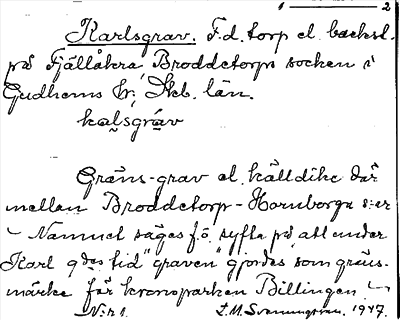 1 — 2
Karlsgrav. F.d. torp el. backst.
på Fjällåkra, Broddetorps socken i
Gudhems hr; Skb. län.
kalsgrav
Gräns-grav el. källdike där
mellan Broddetorp-Hornborga s:er
- Namnet säges f.ö. syfta på att under
Karl 9des tid "graven" gjordes som gräns-
märke för kronoparken Billingen -
N:r 1. 1947.